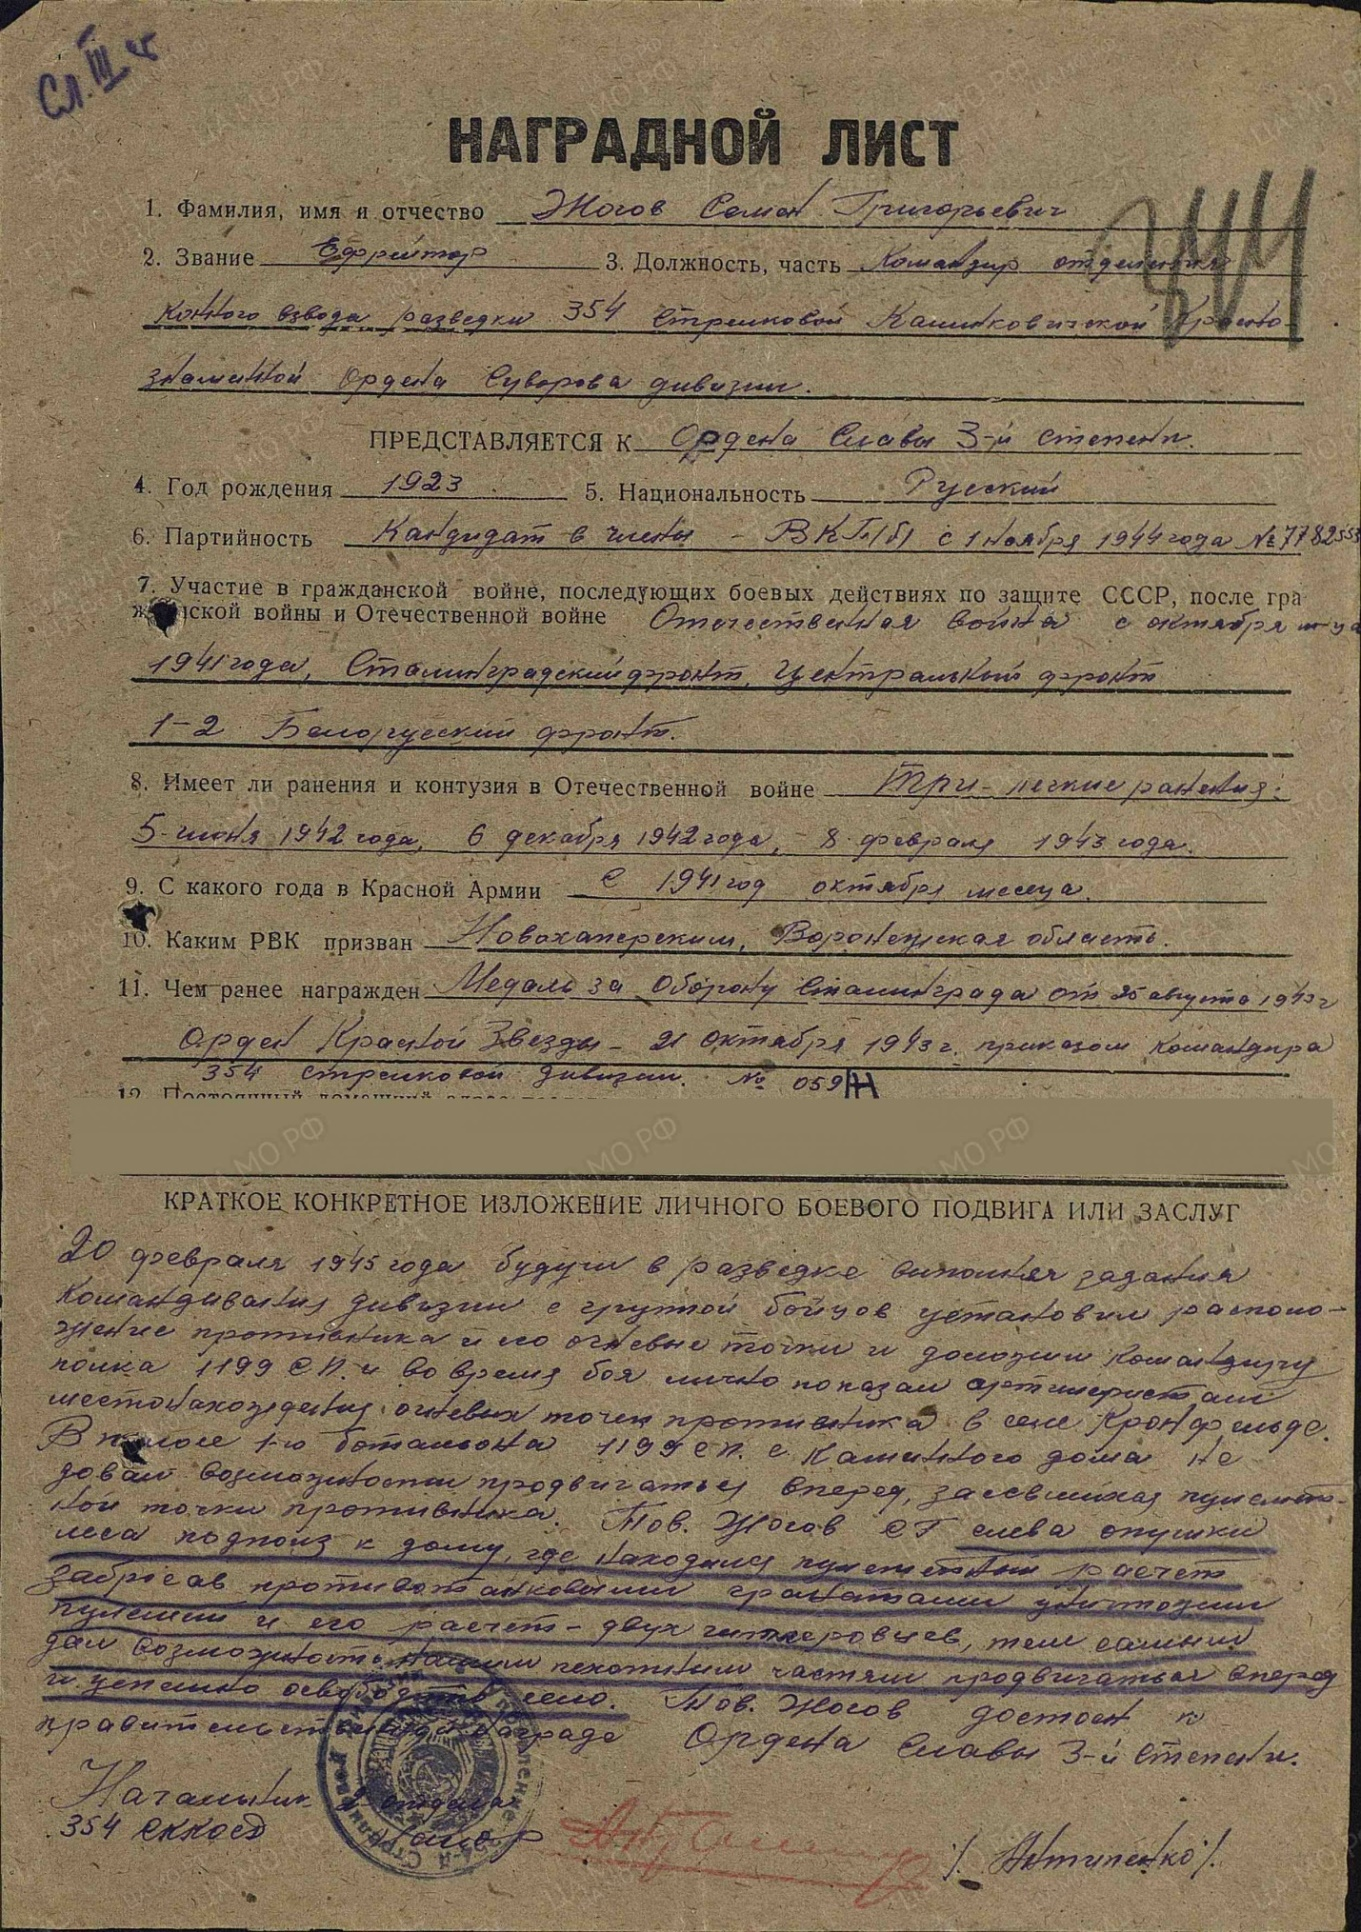 Сл. III ст
НАГРАДНОЙ ЛИСТ
1. Фамилия, имя и отчество Жогов Семен Григорьевич
2. Звание Ефрейтор 3. Должность, часть Командир отделения
конного взвода разведки 354 стрелковой Калинковичской Красно-
знаменной Ордена Суворова дивизии.
ПРЕДСТАВЛЯЕТСЯ К Ордена Славы 3-й степени.
4. Год рождения 1923 5. Национальность Русский
6. Партийность Кандидат в члены - ВКП(б) с 1 ноября 1944 года № 7782553
7. Участие в гражданской войне, последующих боевых действиях по защите СССР, после гра
жданской войны и Отечественной войне Отечественная война с октября м-ца
1941 года, Сталинградский фронт, Центральный фронт
1-2 Белорусский фронт.
8. Имеет ли ранения и контузия в Отечественной войне Три - легкие ранения:
5-июня 1942 года, 6 декабря 1942 года, - 8 февраля 1943 года.
9. С какого года в Красной Армии С 1941 год октября месеца.
10. Каким РВК призван Новохаперским, Воронежская область.
11. Чем ранее награжден Медаль за Оборону Сталинграда от 25 августа 1943 г
Орден Красной Звезды - 21 октября 1943 г. приказом командира
354 стрелковой дивизии. № 059/н
12. Постоянный домашний адрес
КРАТКОЕ КОНКРЕТНОЕ ИЗЛОЖЕНИЕ ЛИЧНОГО БОЕВОГО ПОДВИГА ИЛИ ЗАСЛУГ
20 февраля 1945 года будучи в разведке выполняя задания
Командивания дивизии с групой бойцов установил располо-
жение противника и его огневые точки и доложил командиру
полка 1199 СП. и во время боя лично показал артилеристам
местонахождения огневых точек противника в селе Кронфельде.
В полосе 1-го баталъона 1199 СП. с каминного дома не
довал возможности продвигаться вперед, засевшихая пулеметт-
ной точки противника. Тов. Жогов СГ слева опушки
леса подполз к дому, где находился пулеметный расчет
забросав противотанковыми гранатами уничтожил
пулемет и его расчет - двух гитлеровцев, тем самым
дал возможность нашим пехотным частям продвигаться вперед
и успешно освободить село. Тов. Жогов достоен к
правительственной награде Ордена Славы 3-й степени.
Начальник 2 отдела
354 сккосд
Майор /Антипенко/.